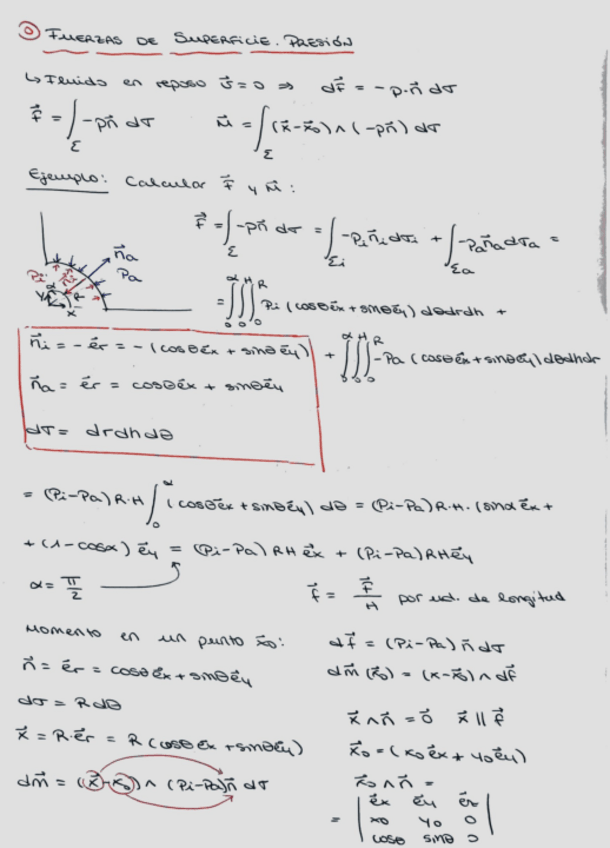 ⊙ FUERZAS DE SUPERFICIE. PRESIÓN
↳ Fluido en reposo v⃗=0 ⇒ df⃗ = -p·n⃗ dσ
f⃗ = ∫_Σ -pn⃗ dσ   M⃗ = ∫_Σ (x⃗-x⃗₀)∧(-pn⃗) dσ
Ejemplo: Calcular f⃗ y M⃗:
f⃗ = ∫_Σ -pn⃗ dσ = ∫_Σi -Pi n⃗i dσi + ∫_Σa -Pa n⃗a dσa =
n⃗a
Pa
Pi n⃗i
α
R
y
x
= ∫₀^α ∫₀^H ∫₀^R Pi (cosθe⃗x + sinθe⃗y) dθdrdh +
+ ∫₀^α ∫₀^H ∫₀^R -Pa (cosθe⃗x + sinθe⃗y) dθdhdr
n⃗i = - e⃗r = - (cosθe⃗x + sinθe⃗y)
n⃗a = e⃗r = cosθe⃗x + sinθe⃗y
dσ = drdhdθ
= (Pi-Pa) R·H ∫₀^α (cosθe⃗x + sinθe⃗y) dθ = (Pi-Pa) R·H· (sinα e⃗x +
+ (1-cosα) e⃗y = (Pi-Pa) RH e⃗x + (Pi-Pa) RH e⃗y
α = π/2
f⃗ = F⃗/H por ud. de longitud
Momento en un punto x⃗₀:   df⃗ = (Pi-Pa) n⃗ dσ
n⃗ = e⃗r = cosθe⃗x + sinθe⃗y   dm⃗ (x⃗₀) = (x-x⃗₀) ∧ df⃗
dσ = Rdθ
x⃗ ∧ n⃗ = 0⃗   x⃗ ∥ f⃗
x⃗ = R·e⃗r = R (cosθ e⃗x + sinθe⃗y)   x⃗₀ = (x₀e⃗x + y₀e⃗y)
dm⃗ = (x⃗-x⃗₀) ∧ (Pi-Pa) n⃗ dσ   x⃗₀ ∧ n⃗ =
= | e⃗x e⃗y e⃗z |
| x₀ y₀ 0 |
| cosθ sinθ 0 |